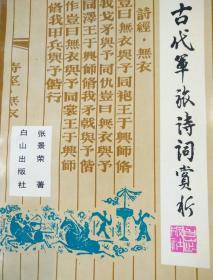 古代军旅诗词赏析
詩經·無衣
豈曰無衣與子同袍王于興師修
我戈矛與子同仇豈曰無衣與子
同澤王于興師修我矛戟與子偕
作豈曰無衣與子同裳王于興師
修我甲兵與子偕行
张景荣 著
白山出版社